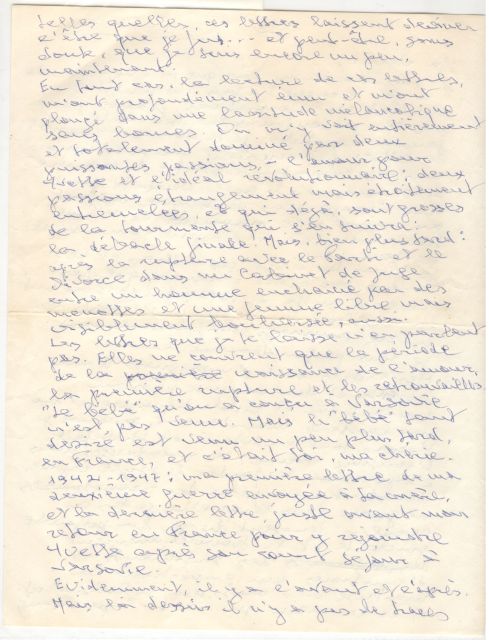 telles quelles, ces lettres laissent deviner
l'être que je fus... et peut-être, sans
doute, que je suis encore un peu,
maintenant.
En tout cas, la lecture de ces lettres,
m'ont profondément ému et m'ont
plongé dans une lassitude mélancolique
sans bornes. On m'y voit entièrement
et totalement dominé par deux
puissantes passions, – l'amour pour
Yvette et l'idéal révolutionnaire; deux
passions étrangement mais étroitement
entremêlées, et qui déjà, sont grosses
de la tourmente qui s'en suivra:
la débâcle finale. Mais, bien plus tard:
après la rupture avec le Parti et le
divorce dans un Cabinet de Juge
entre un homme enchaîné par des
menottes et une femme libre mais
visiblement bouleversée, aussi.
Les lettres que je te laisse n'en parlent
pas. Elles ne couvrent que la période
de la première naissance de l'amour,
la première rupture et les retrouvailles
"Le bébé" qu'on a conçu à Varsovie
n'est, pas venu. Mais le "bébé" tant
désiré est venu un peu plus tard,
en France, et c'était toi, ma chérie.
1942-1947: ma première lettre de ma
deuxième guerre envoyée à ta mère,
et la dernière lettre juste avant mon
retour en France pour y rejoindre
Yvette après son court séjour à
Varsovie.
Evidemment, il y a l'avant et l'après.
Mais là dessus il n'y a pas de traces